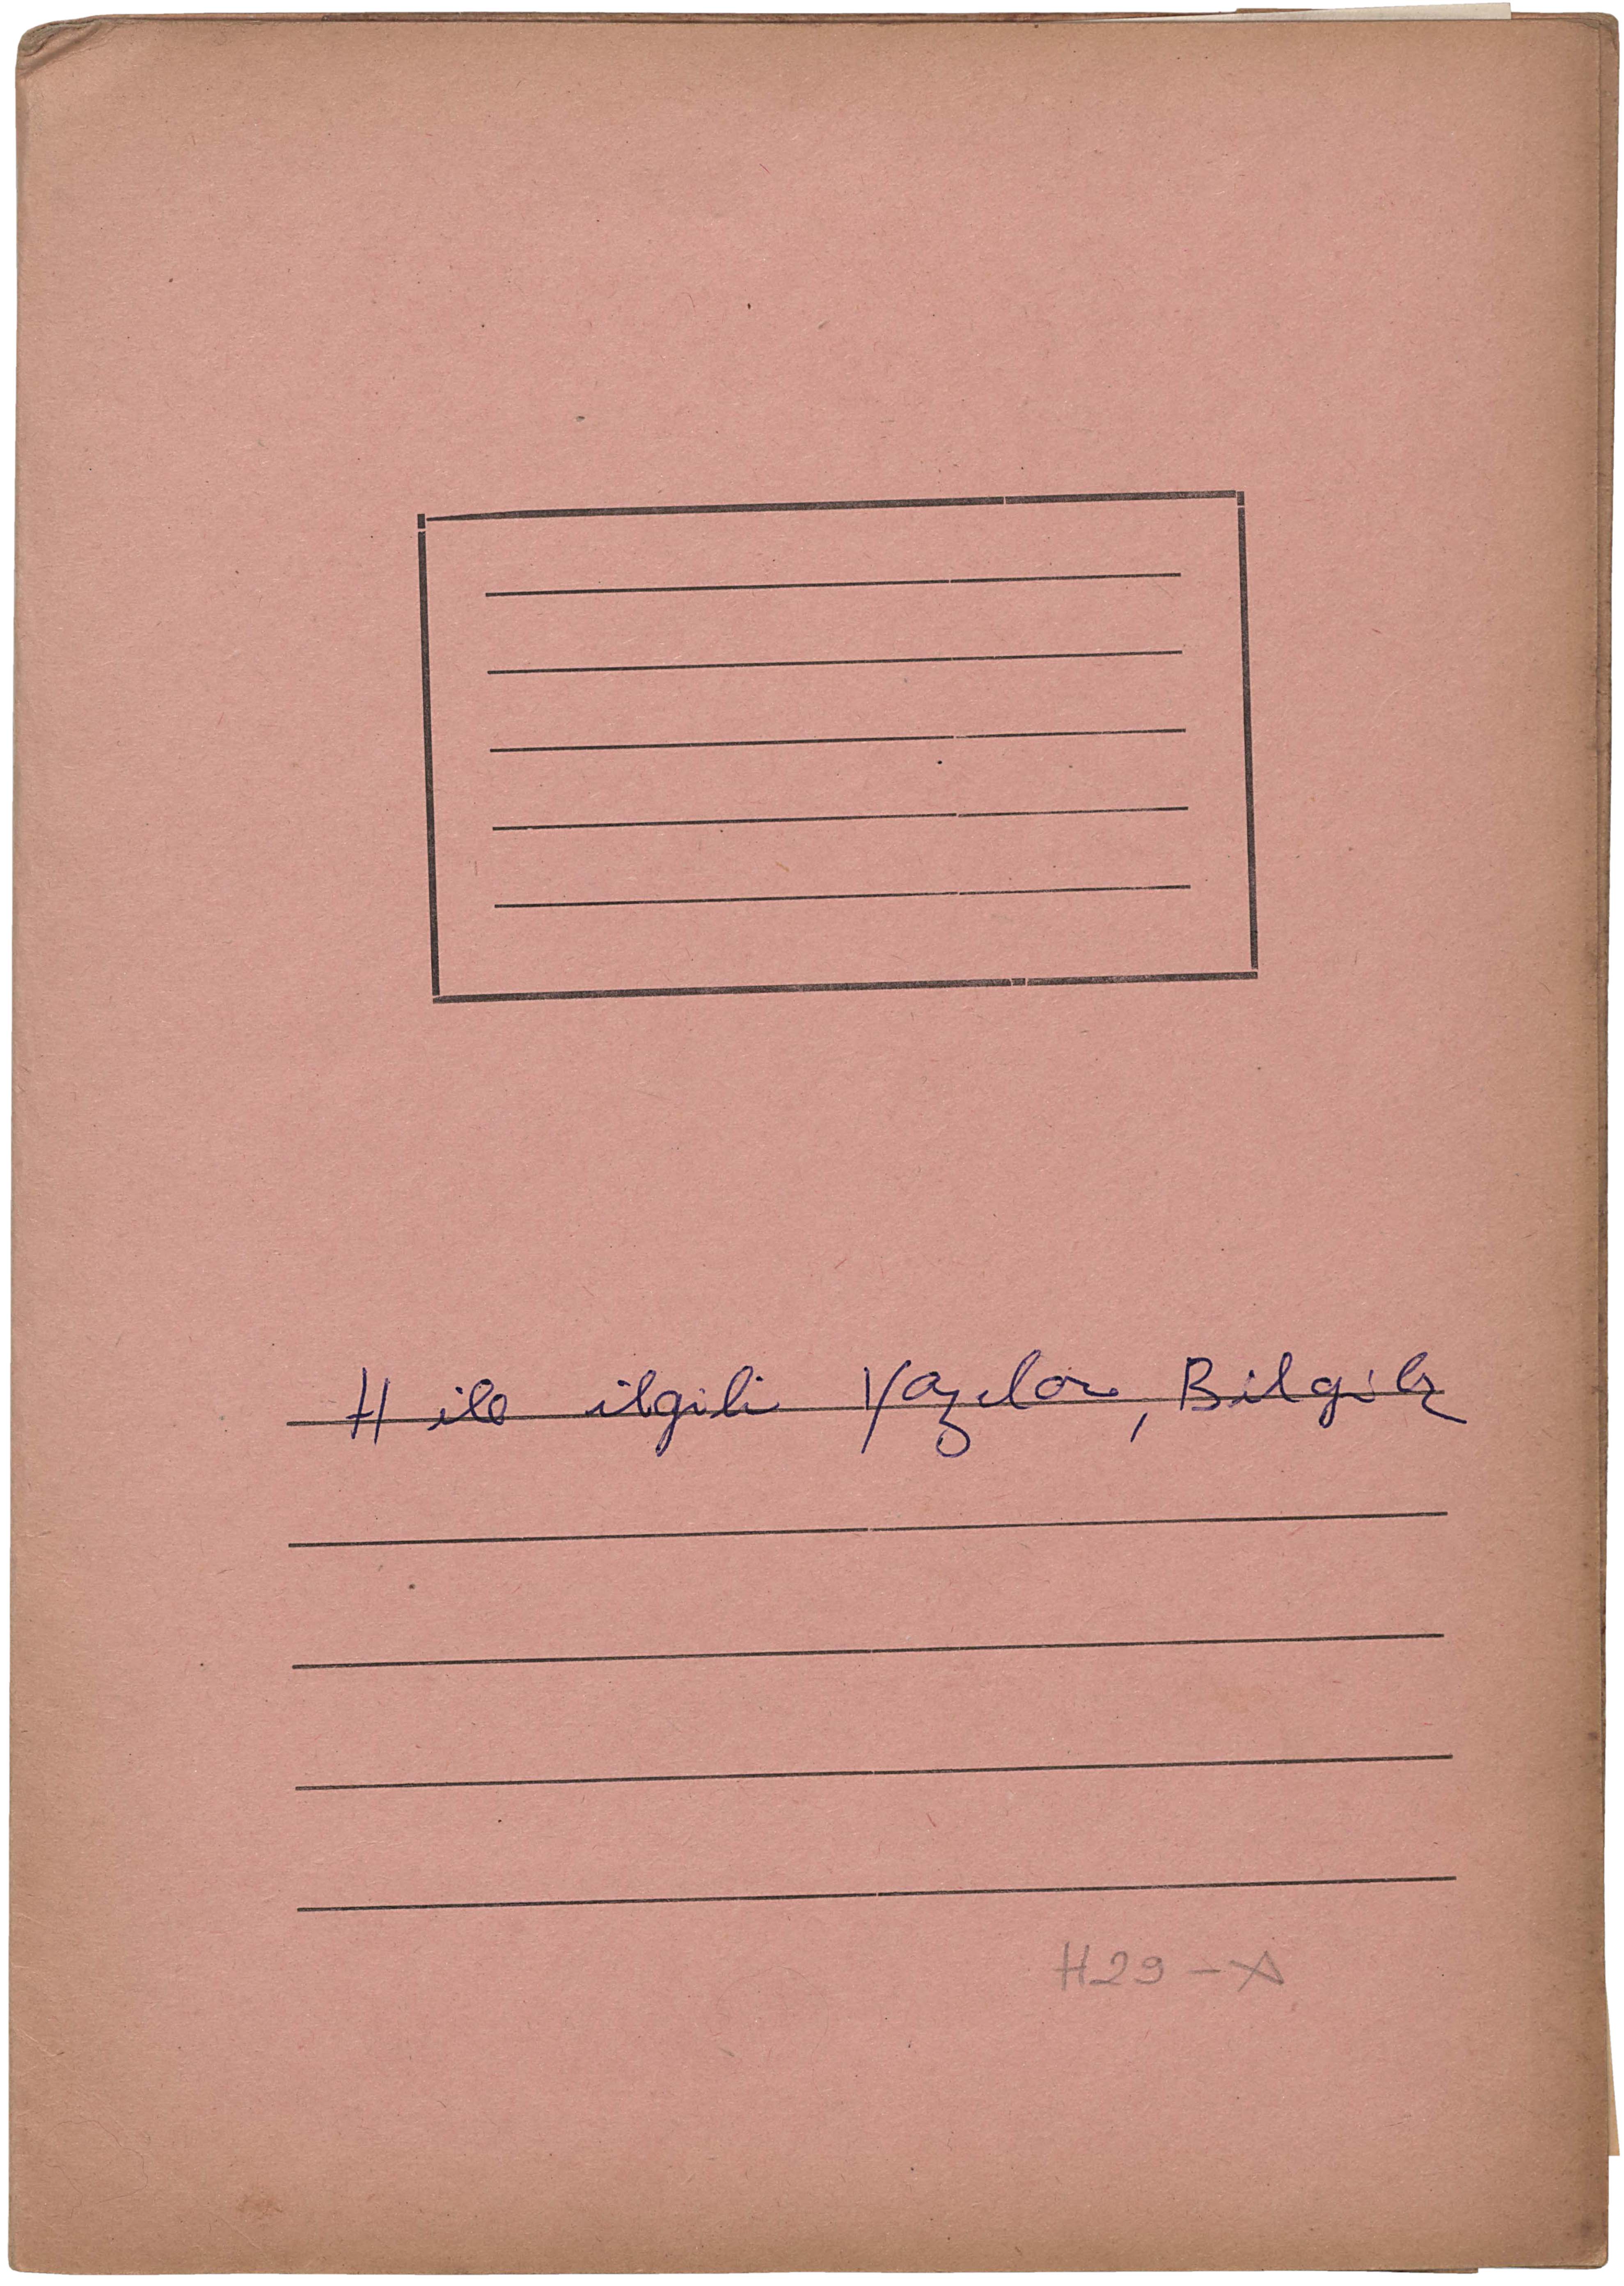 H ile ilgili Yazılar, Bilgiler
H29-A